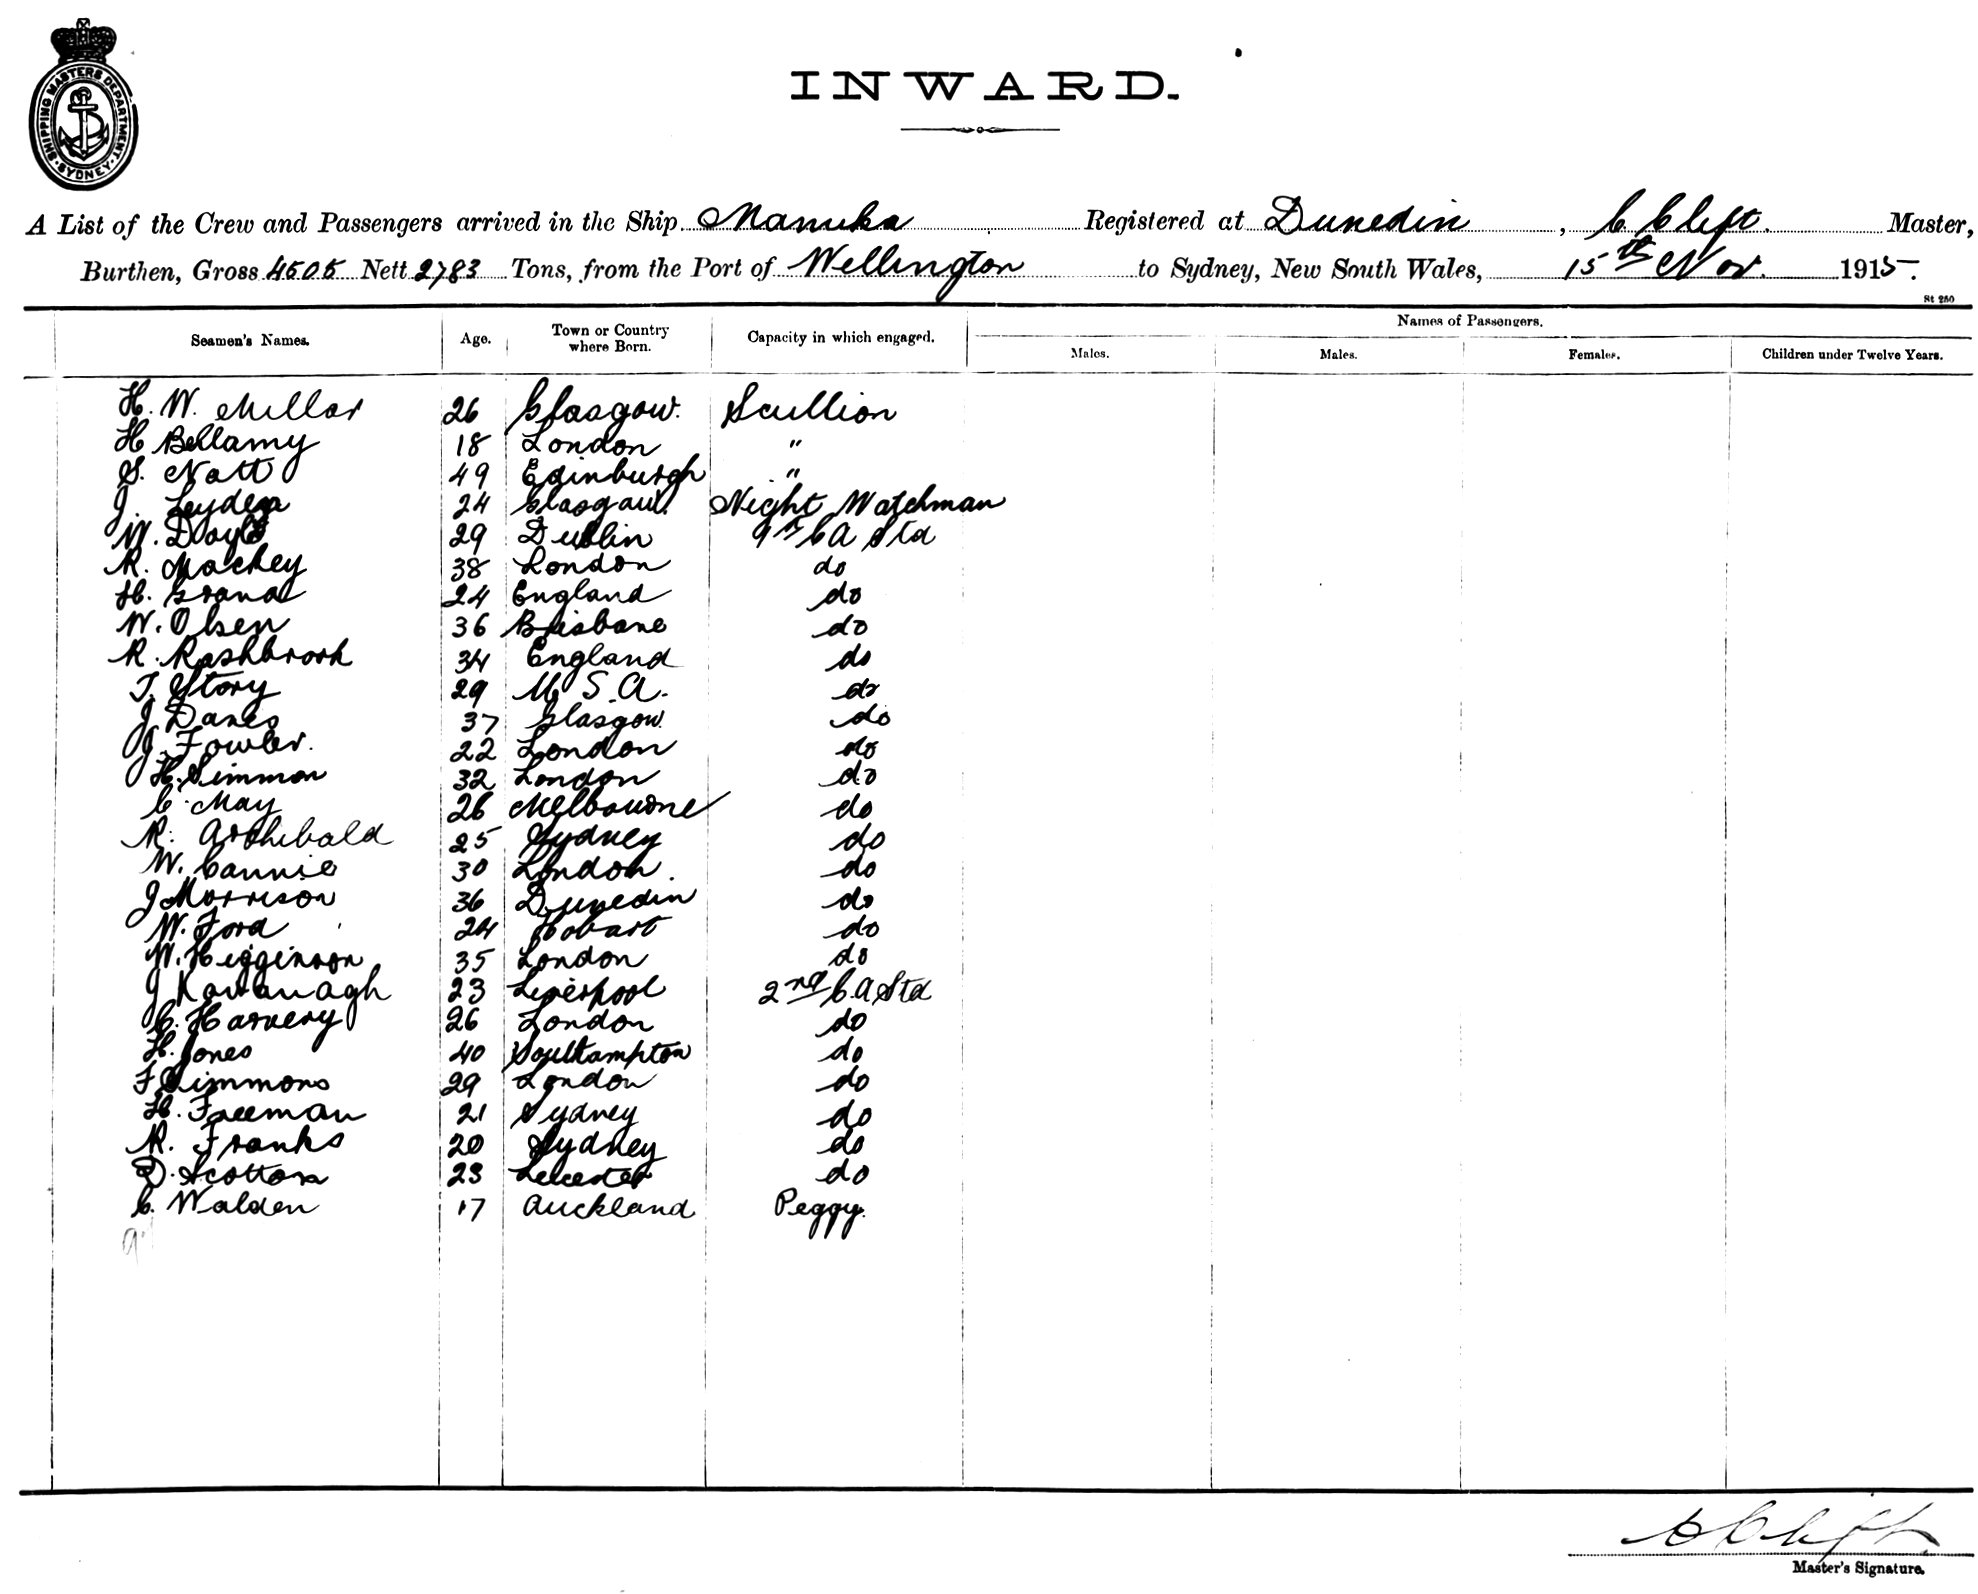 SHIPPING MASTERS DEPARTMENT
SYDNEY
INWARD.
A List of the Crew and Passengers arrived in the Ship Manuka Registered at Dunedin, C Clift. Master,
Burthen, Gross 4505 Nett 2783 Tons, from the Port of Wellington to Sydney, New South Wales, 15th Nov. 1915.
St 250
Seamen's Names. Age. Town or Country where Born. Capacity in which engaged. Names of Passengers.
Males. Males. Females. Children under Twelve Years.
H. W. Millar 26 Glasgow. Scullion
H Bellamy 18 London "
S. Natt 49 Edinburgh "
J. Leyden 24 Glasgow. Night Watchman
W. Doyle 29 Dublin CA Std
R. Mackey 38 London do
H. Grand 24 England do
W. Olsen 36 Brisbane do
R. Rashbrook 34 England do
T. Story 29 U S A. do
J Danes 37 Glasgow. do
J. Fowler. 22 London do
H. Simmon 32 London do
C. May 26 Melbourne do
R. Archibald 25 Sydney do
W. Cannie 30 London. do
J Morrison 36 Dunedin do
W. Ford 24 Hobart do
W. Higginson 35 London do
J Kavanagh 23 Liverpool 2nd C.A Std
C. Harvery 26 London do
H. Jones 40 Southampton do
F Simmons 29 London do
H. Freeman 21 Sydney do
R. Franks 20 Sydney do
D. Scotton 23 Leicester do
C. Walden 17 Auckland Peggy.
C Clift
Master's Signature.